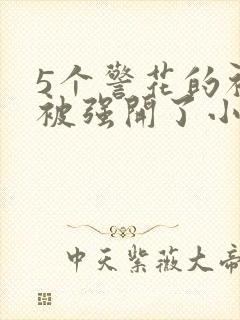 5个警花的
被强開了小
中天紫薇大帝